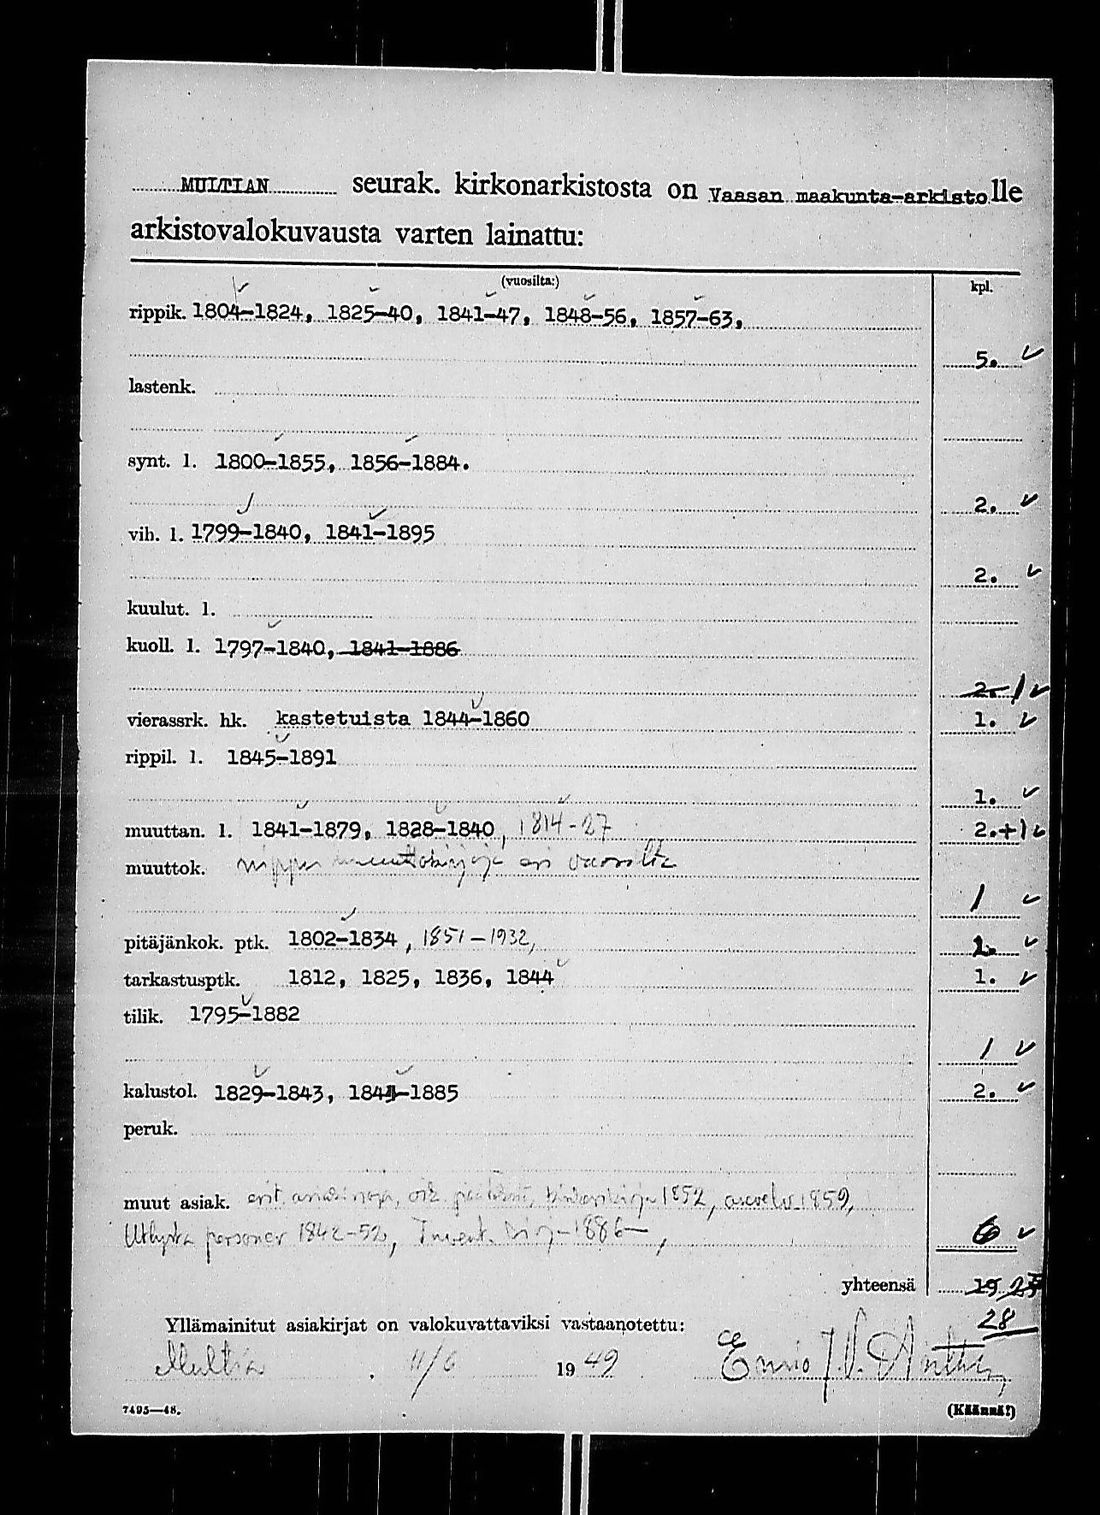 MULTIAN seurak. kirkonarkistosta on Vaasan maakunta-arkistolle
arkistovalokuvausta varten lainattu:
(vuosilta:) kpl.
rippik. 1804-1824, 1825-40, 1841-47, 1848-56, 1857-63,
5.
lastenk.
synt. l. 1800-1855, 1856-1884.
2.
vih. l. 1799-1840, 1841-1895
2.
kuulut. l.
kuoll. l. 1797-1840, 1841-1886
2. 1
vierassrk. hk. kastetuista 1844-1860 1.
rippil. l. 1845-1891
1.
muuttan. l. 1841-1879, 1828-1840, 1814-27 2.+1
muuttok. nippu muuttokirjoja eri vuosilta
1
pitäjänkok. ptk. 1802-1834, 1851-1932, 1.
tarkastusptk. 1812, 1825, 1836, 1844 1.
tilik. 1795-1882
1
kalustol. 1829-1843, 1844-1885 2.
peruk.
muut asiak. 1852, 1859,
personer 1842-52, Invent. 1886-, 6
yhteensä 19
28
Yllämainitut asiakirjat on valokuvattaviksi vastaanotettu:
Multia 11/6 1949
7495—48. (Käännä!)